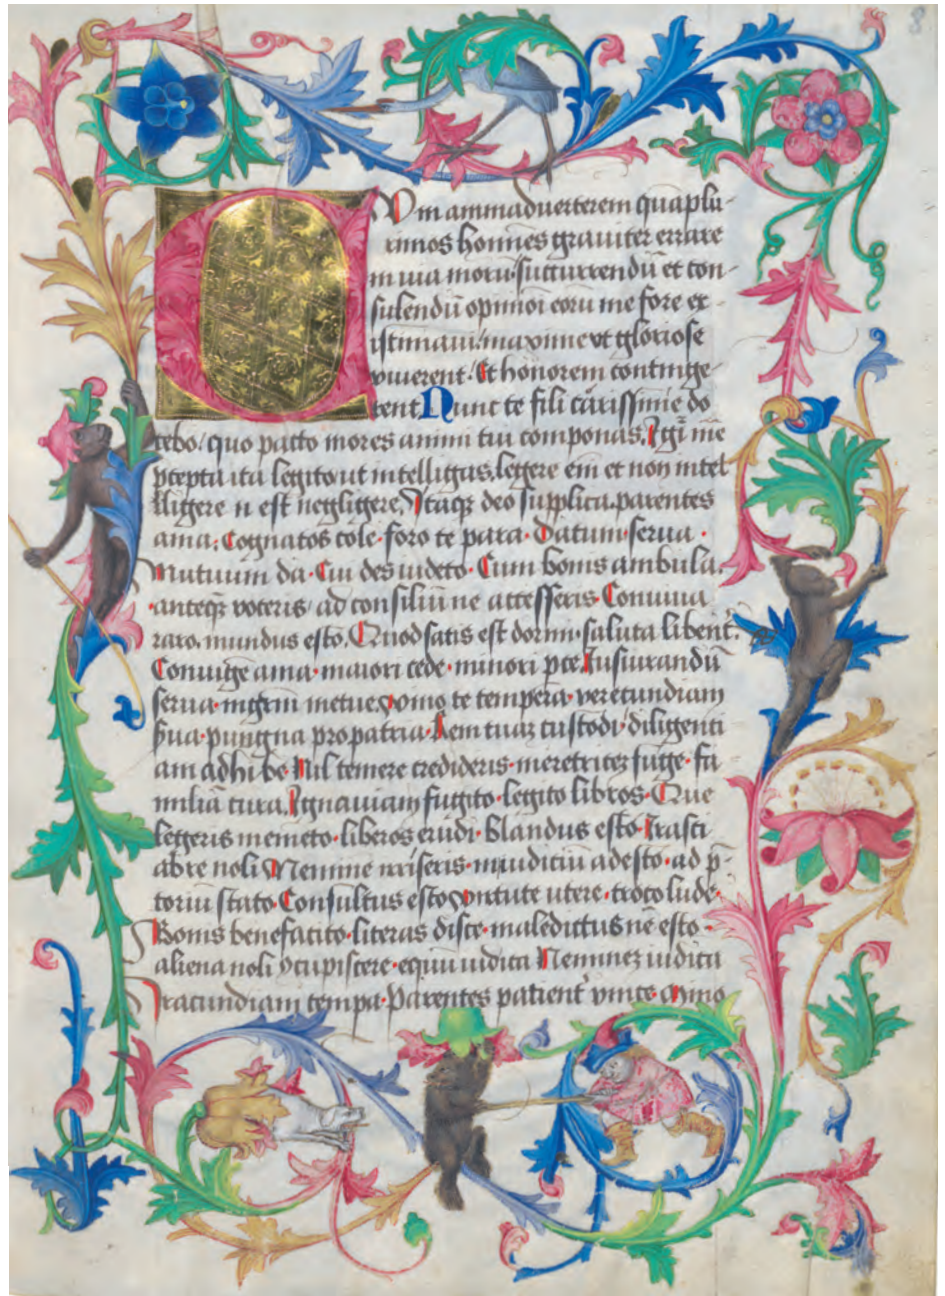 8
Cum animaduerterem quaplu-
rimos homines grauiter errare
in uia moru. succurrendū et con-
sulendū opinioi eorū me fore ex-
istimaui. maxime vt gloriose
viuerent. Et honorem continge-
rent. Nunc te fili carissime do
cebo/ quo pacto mores animi tui componas. Igi me
p̄cepta ita legito ut intelligas. legere em̄ et non intel
lligere n̄ est negligere. Itaq deo supplica. parentes
ama. Cognatos cole. foro te para. Datum serua.
Mutuum da. Cui des uideto. Cum bonis ambula.
anteq voceris/ ad consiliū ne accesseris. Conuiua
raro. mundus esto. Quod satis est dormi. saluta libent̄.
Coniuigē ama. maiori cede. minori p̄ce. Iusiurandū
serua. mḡrm metue. vino te tempera. verecundiam
s̄ua. pungna pro patria. Rem tuaz custodi. diligenti
am adhibe. Nil temere credideris. meretricez fuge. fa
miliā cura. Ignauiam fugito. legito libros. Que
legeris memeto. liberos erudi. blandus esto. Irasci
abre noli. Neminē irriseris. in iuditiū adesto. ad p̄-
toriū stato. Consultus esto. virtute utere. troco lude.
Bonis benefacito. literas disce. maledictus ne esto.
aliena noli ꝯcupiscere. equū iudica. Neminez iudica
Iracundiam tempa. Parentes patient̄ vince. Mino